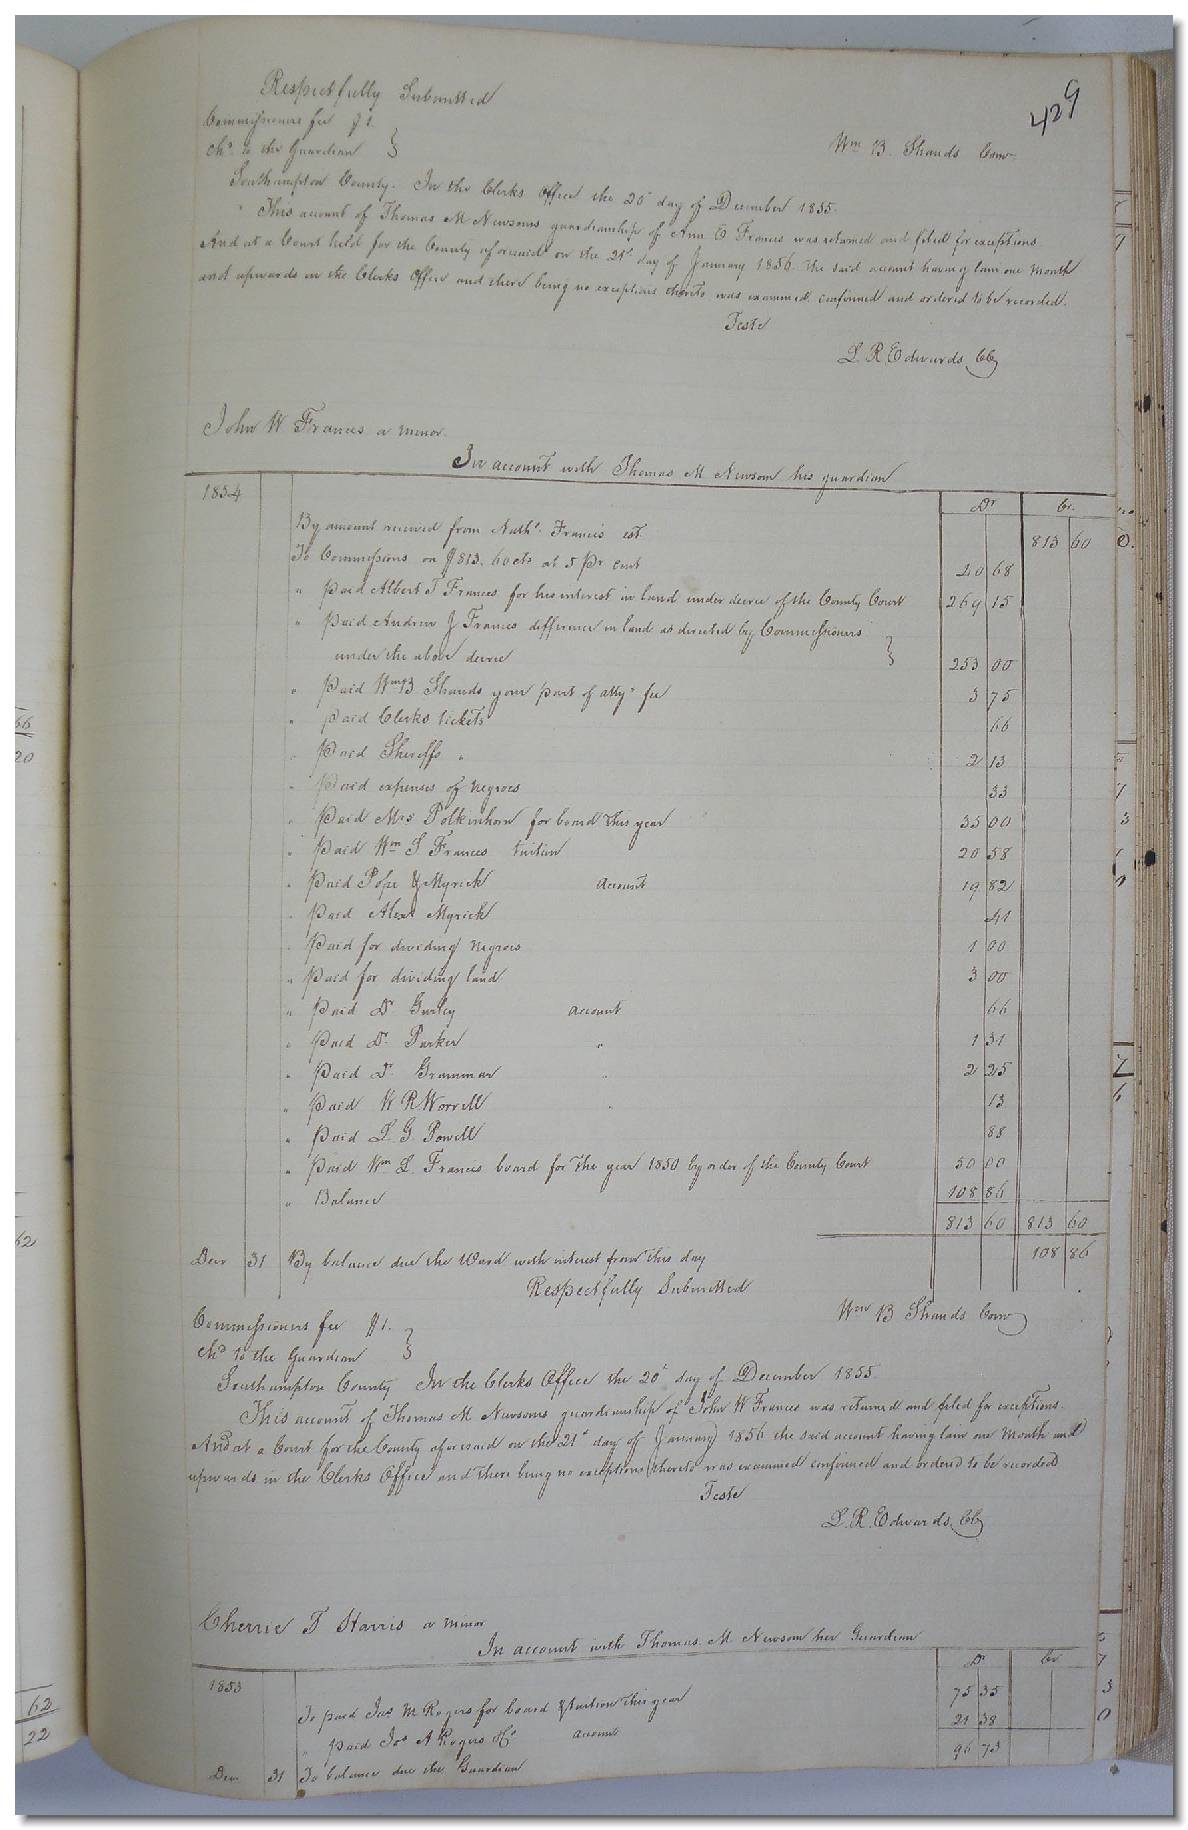 429
Respectfully Submitted
Commissioners fee $1.
Chd. to the Guardian
Wm B. Shands Comr.
Southampton County. In the Clerks Office the 20th day of December 1855.
This account of Thomas M Newsoms guardianship of Ann E Francis was returned and filed for exceptions
And at a Court held for the County aforesaid on the 21st day of January 1856 the said account having lain one Month
and upwards in the Clerks Office and there being no exceptions thereto was examined, confirmed and ordered to be recorded.
Teste
L. R. Edwards CC
John W Francis a minor.
In account with Thomas M Newsom his guardian
1854 Dr Cr.
By amount received from Nathl. Francis est. 813 60
To Commissions on $813.60cts at 5 pr cent 40 68
" paid Albert T Francis for his interest in land under decree of the County Court 269 15
" Paid Andrew J Francis difference in land as directed by Commissioners
under the above decree 253 00
" Paid Wm B Shands your part of atty's fee 3 75
" paid Clerks tickets 66
" Paid Sheriffs " 2 13
" Paid expenses of negroes 33
" Paid Mrs Polkinhorn for board this year 35 00
" Paid Wm S Francis tuition 20 58
" Paid Pope & Myrick account 19 82
" paid Alexr Myrick 41
" Paid for dividing Negroes 1 00
" Paid for dividing land 3 00
" Paid Dr. Gurley account 66
" Paid Dr. Parker " 1 31
" Paid Dr. Grammar " 2 25
" Paid W R Worrell " 13
" Paid L. G. Powell 88
" Paid Wm L. Francis board for the year 1850 by order of the County Court 50 00
" Balance 108 86
813 60 813 60
Decr 31 By balance due the Ward with interest from this day 108 86
Respectfully Submitted
Wm B Shands Comr
Commissioners fee $1.
Chd to the Guardian
Southampton County In the Clerks Office the 20th day of December 1855.
This account of Thomas M Newsoms guardianship of John W Francis was returned and filed for exceptions.
And at a Court for the County aforesaid on the 21st day of January 1856 the said account having lain one Month and
upwards in the Clerks Office and there being no exceptions thereto was examined confirmed and ordered to be recorded
Teste
L. R. Edwards CC
Cherrie T Harris a minor
In account with Thomas M Newsom her Guardian
1853 Dr Cr
To paid Jas M Rogers for board & tuition this year 75 35
" paid Jos A Rogers & Co account 21 38
96 73
Dec. 31 To balance due the Guardian
66
20
62
62
22